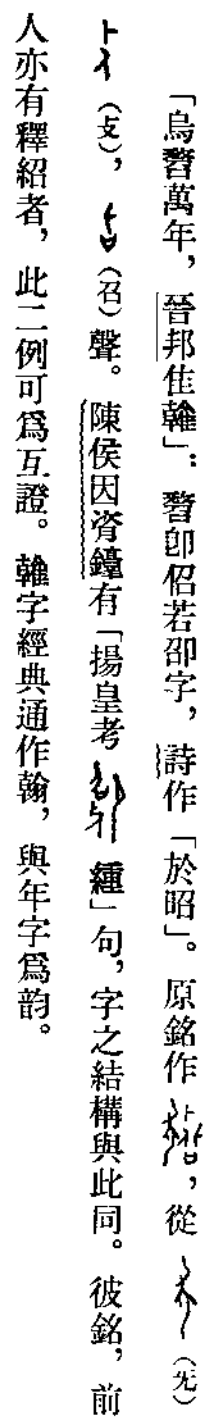 「烏萬年,晉邦隹雗」:卽佋若卲字,詩作「於昭」。原銘作,從(旡)
(攴),(召)聲。陳侯因有「揚皇考緟」句,字之結構與此同。彼銘,前
人亦有釋紹者,此二例可爲互證。雗字經典通作翰,與年字爲韵。